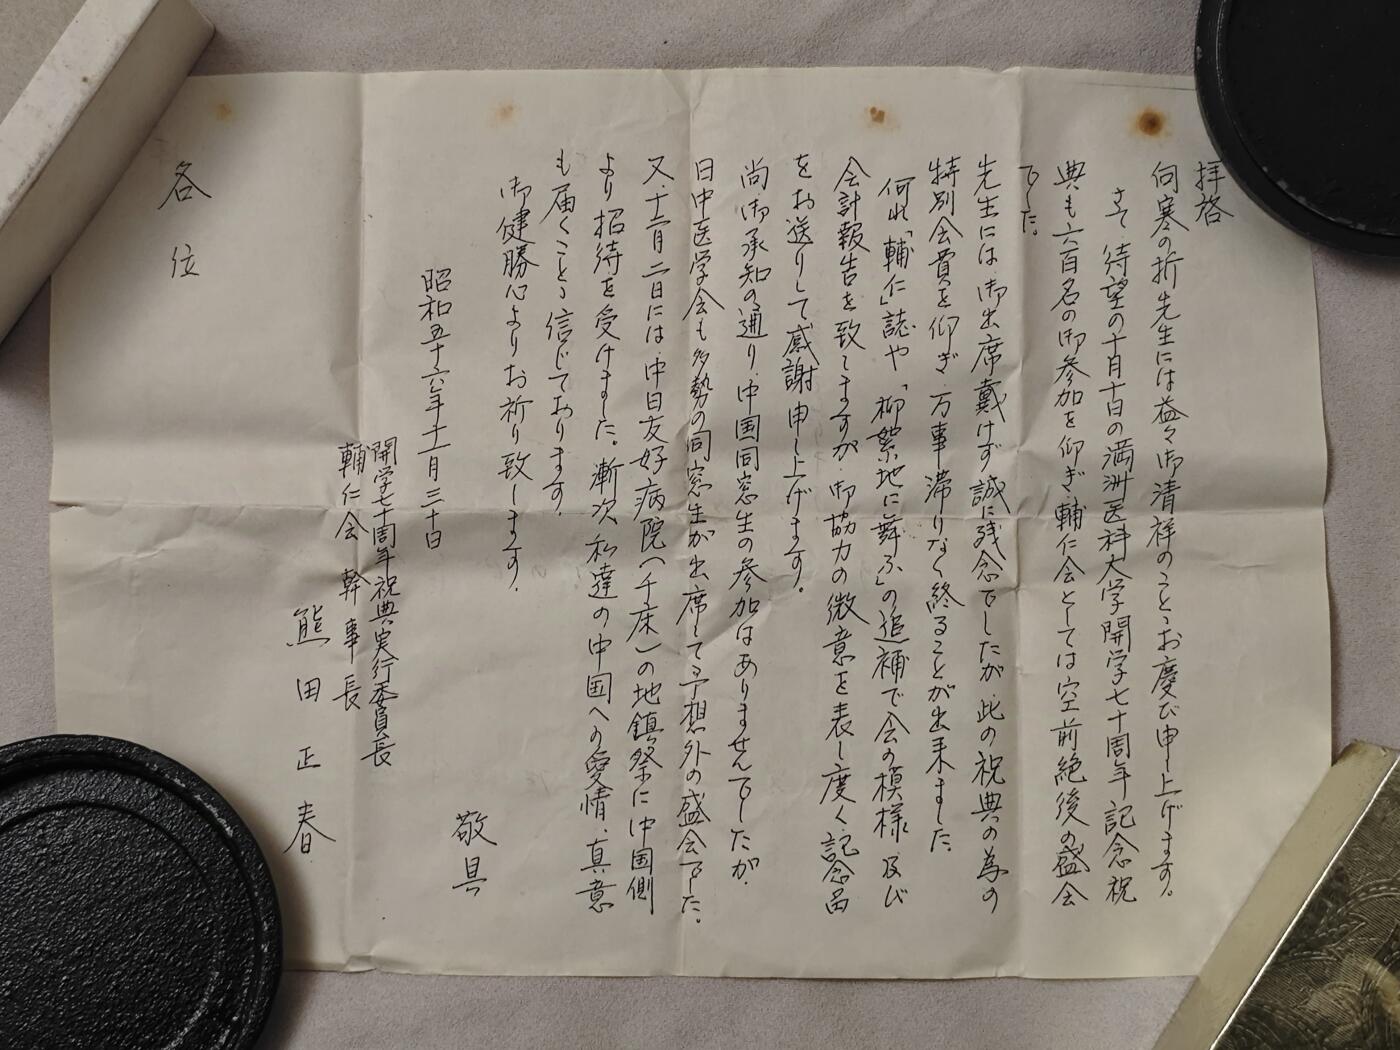 拝啓
伺寒の折先生には益々御清祥のこと、お慶び申し上げます。
さて 待望の十月十日の満洲医科大学開学七十周年記念祝
典も六百名の御参加を仰ぎ、輔仁会としては空前絶後の盛会
でした。
先生には、御出席戴けず誠に残念でしたが、此の祝典の為の
特別会費を仰ぎ、万事滞りなく終ることが出来ました。
何れ「輔仁」誌や「柳絮地に舞ふ」の追補で会の模様及び
会計報告を致しますが、御協力の微意を表し度く、記念品
をお送りして感謝申し上げます。
尚、御承知の通り、中国同窓生の参加はありませんでしたが、
日中医学会も多勢の同窓生が出席して予想外の盛会でした。
又、十二月二日には、中日友好病院(千床)の地鎮祭に中国側
より招待を受けました。漸次 私達の中国への愛情、真意
も届くこと、信じております。
御健勝心よりお祈り致します。
敬具
昭和五十六年十一月三十日
開学七十周年祝典実行委員長
輔仁会 幹事長
熊田正春
各位